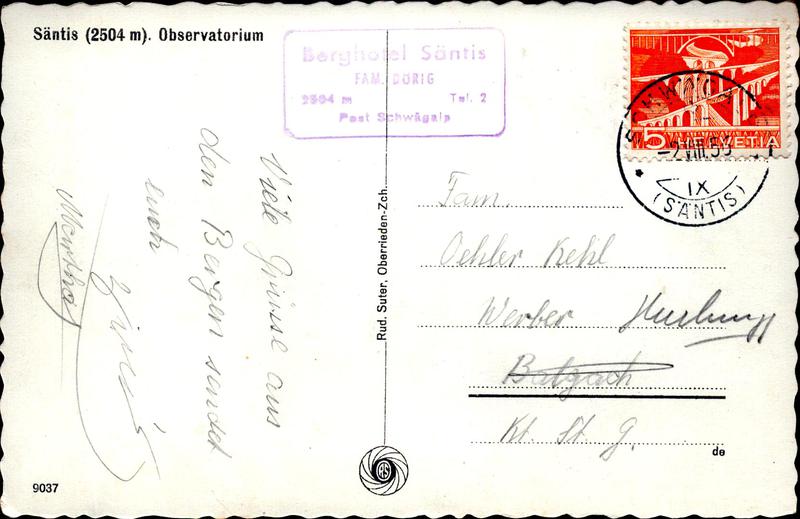 Säntis (2504 m). Observatorium
Berghotel Säntis
FAM. DÖRIG
2504 m Tel. 2
Post Schwägalp
5 HELVETIA
SCHWÄGALP
-2.VIII.53
IX
(SÄNTIS)
Viele Grüsse aus
den Bergen sendet
euch
Martha
Rud. Suter, Oberrieden-Zch.
RS
Fam.
Oehler Kehl
Werber
Balgach
Kt. St. G.
de
9037